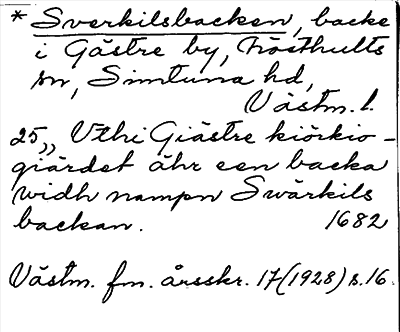 * Sverkilsbacken, backe
i Gästre by, Nösthults
sn, Simtuna hd,
Västm. l.
25,, Vthi Giästre kiörkio-
giärdet ähr een backa
widh nampn Swärkils
backan. 1682
Västm. fm. årsskr. 17 (1928) s. 16.